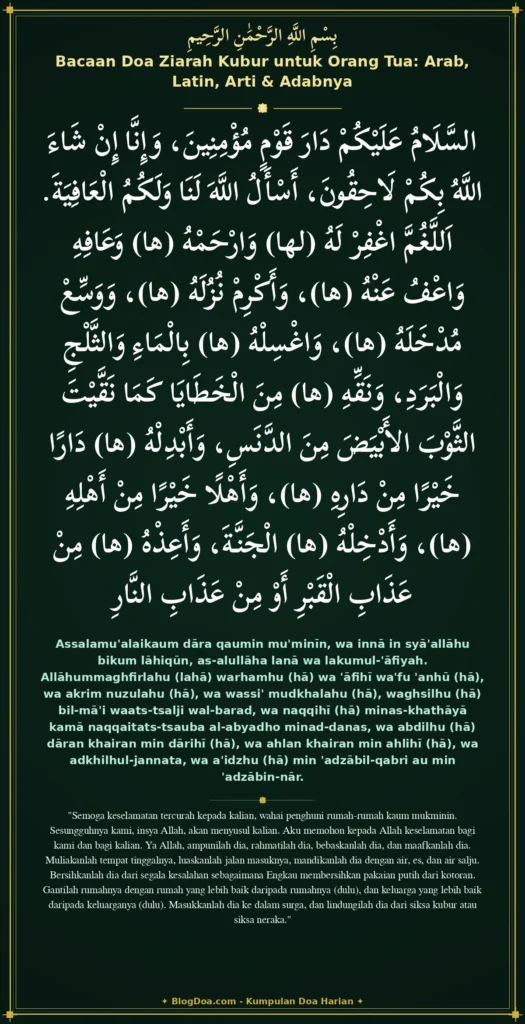 بِسْمِ اللَّهِ الرَّحْمَٰنِ الرَّحِيمِ
Bacaan Doa Ziarah Kubur untuk Orang Tua: Arab,
Latin, Arti & Adabnya
السَّلَامُ عَلَيْكُمْ دَارَ قَوْمٍ مُؤْمِنِينَ، وَإِنَّا إِنْ شَاءَ
اللَّهُ بِكُمْ لَاحِقُونَ، أَسْأَلُ اللَّهَ لَنَا وَلَكُمُ الْعَافِيَةَ.
اَللَّغُمَّ اغْفِرْ لَهُ (لها) وَارْحَمْهُ (ها) وَعَافِهِ
وَاعْفُ عَنْهُ (ها)، وَأَكْرِمْ نُزُلَهُ (ها)، وَوَسِّعْ
مُدْخَلَهُ (ها)، وَاغْسِلْهُ (ها) بِالْمَاءِ وَالثَّلْجِ
وَالْبَرَدِ، وَنَقِّهِ (ها) مِنَ الْخَطَايَا كَمَا نَقَّيْتَ
الثَّوْبَ الأَبْيَضَ مِنَ الدَّنَسِ، وَأَبْدِلْهُ (ها) دَارًا
خَيْرًا مِنْ دَارِهِ (ها)، وَأَهْلًا خَيْرًا مِنْ أَهْلِهِ
(ها)، وَأَدْخِلْهُ (ها) الْجَنَّةَ، وَأَعِذْهُ (ها) مِنْ
عَذَابِ الْقَبْرِ أَوْ مِنْ عَذَابِ النَّارِ
Assalamu'alaikaum dāra qaumin mu'minīn, wa innā in syā'allāhu
bikum lāhiqūn, as-alullāha lanā wa lakumul-'āfiyah.
Allāhummaghfirlahu (lahā) warhamhu (hā) wa 'āfihī wa'fu 'anhū (hā),
wa akrim nuzulahu (hā), wa wassi' mudkhalahu (hā), waghsilhu (hā)
bil-mā'i waats-tsalji wal-barad, wa naqqihī (hā) minas-khathāyā
kamā naqqaitats-tsauba al-abyadho minad-danas, wa abdilhu (hā)
dāran khairan min dārihī (hā), wa ahlan khairan min ahlihī (hā), wa
adkhilhul-jannata, wa a'idzhu (hā) min 'adzābil-qabri au min
'adzābin-nār.
"Semoga keselamatan tercurah kepada kalian, wahai penghuni rumah-rumah kaum mukminin.
Sesungguhnya kami, insya Allah, akan menyusul kalian. Aku memohon kepada Allah keselamatan bagi
kami dan bagi kalian. Ya Allah, ampunilah dia, rahmatilah dia, bebaskanlah dia, dan maafkanlah dia.
Muliakanlah tempat tinggalnya, luaskanlah jalan masuknya, mandikanlah dia dengan air, es, dan air salju.
Bersihkanlah dia dari segala kesalahan sebagaimana Engkau membersihkan pakaian putih dari kotoran.
Gantilah rumahnya dengan rumah yang lebih baik daripada rumahnya (dulu), dan keluarga yang lebih baik
daripada keluarganya (dulu). Masukkanlah dia ke dalam surga, dan lindungilah dia dari siksa kubur atau
siksa neraka."
✦ BlogDoa.com - Kumpulan Doa Harian ✦